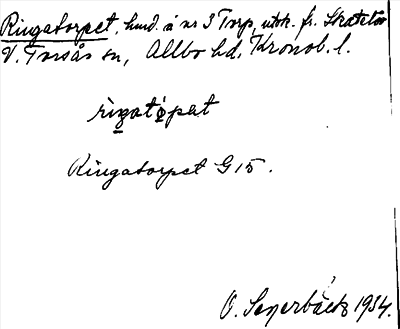 Ringatorpet, hmd. å nr 3 Torp, utsk. fr. 
V. Torsås sn, Allbo hd, Kronob. l.
rigatọpat
Ringatorpet G 15.
O. Segerbäck 1934.